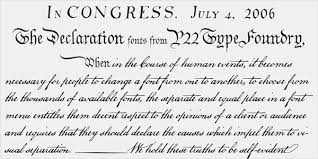 In CONGRESS, July 4, 2006
The Declaration fonts from P22 Type Foundry,
When in the Course of human events, it becomes
necessary for people to change a font from one to another, to choose from
the thousands of available fonts, the separate and equal place in a font
menu entitles them decent respect to the opinions of a client or audience
and requires that they should declare the causes which impel them to vi-
sual separation —— We hold these truths to be self-evident